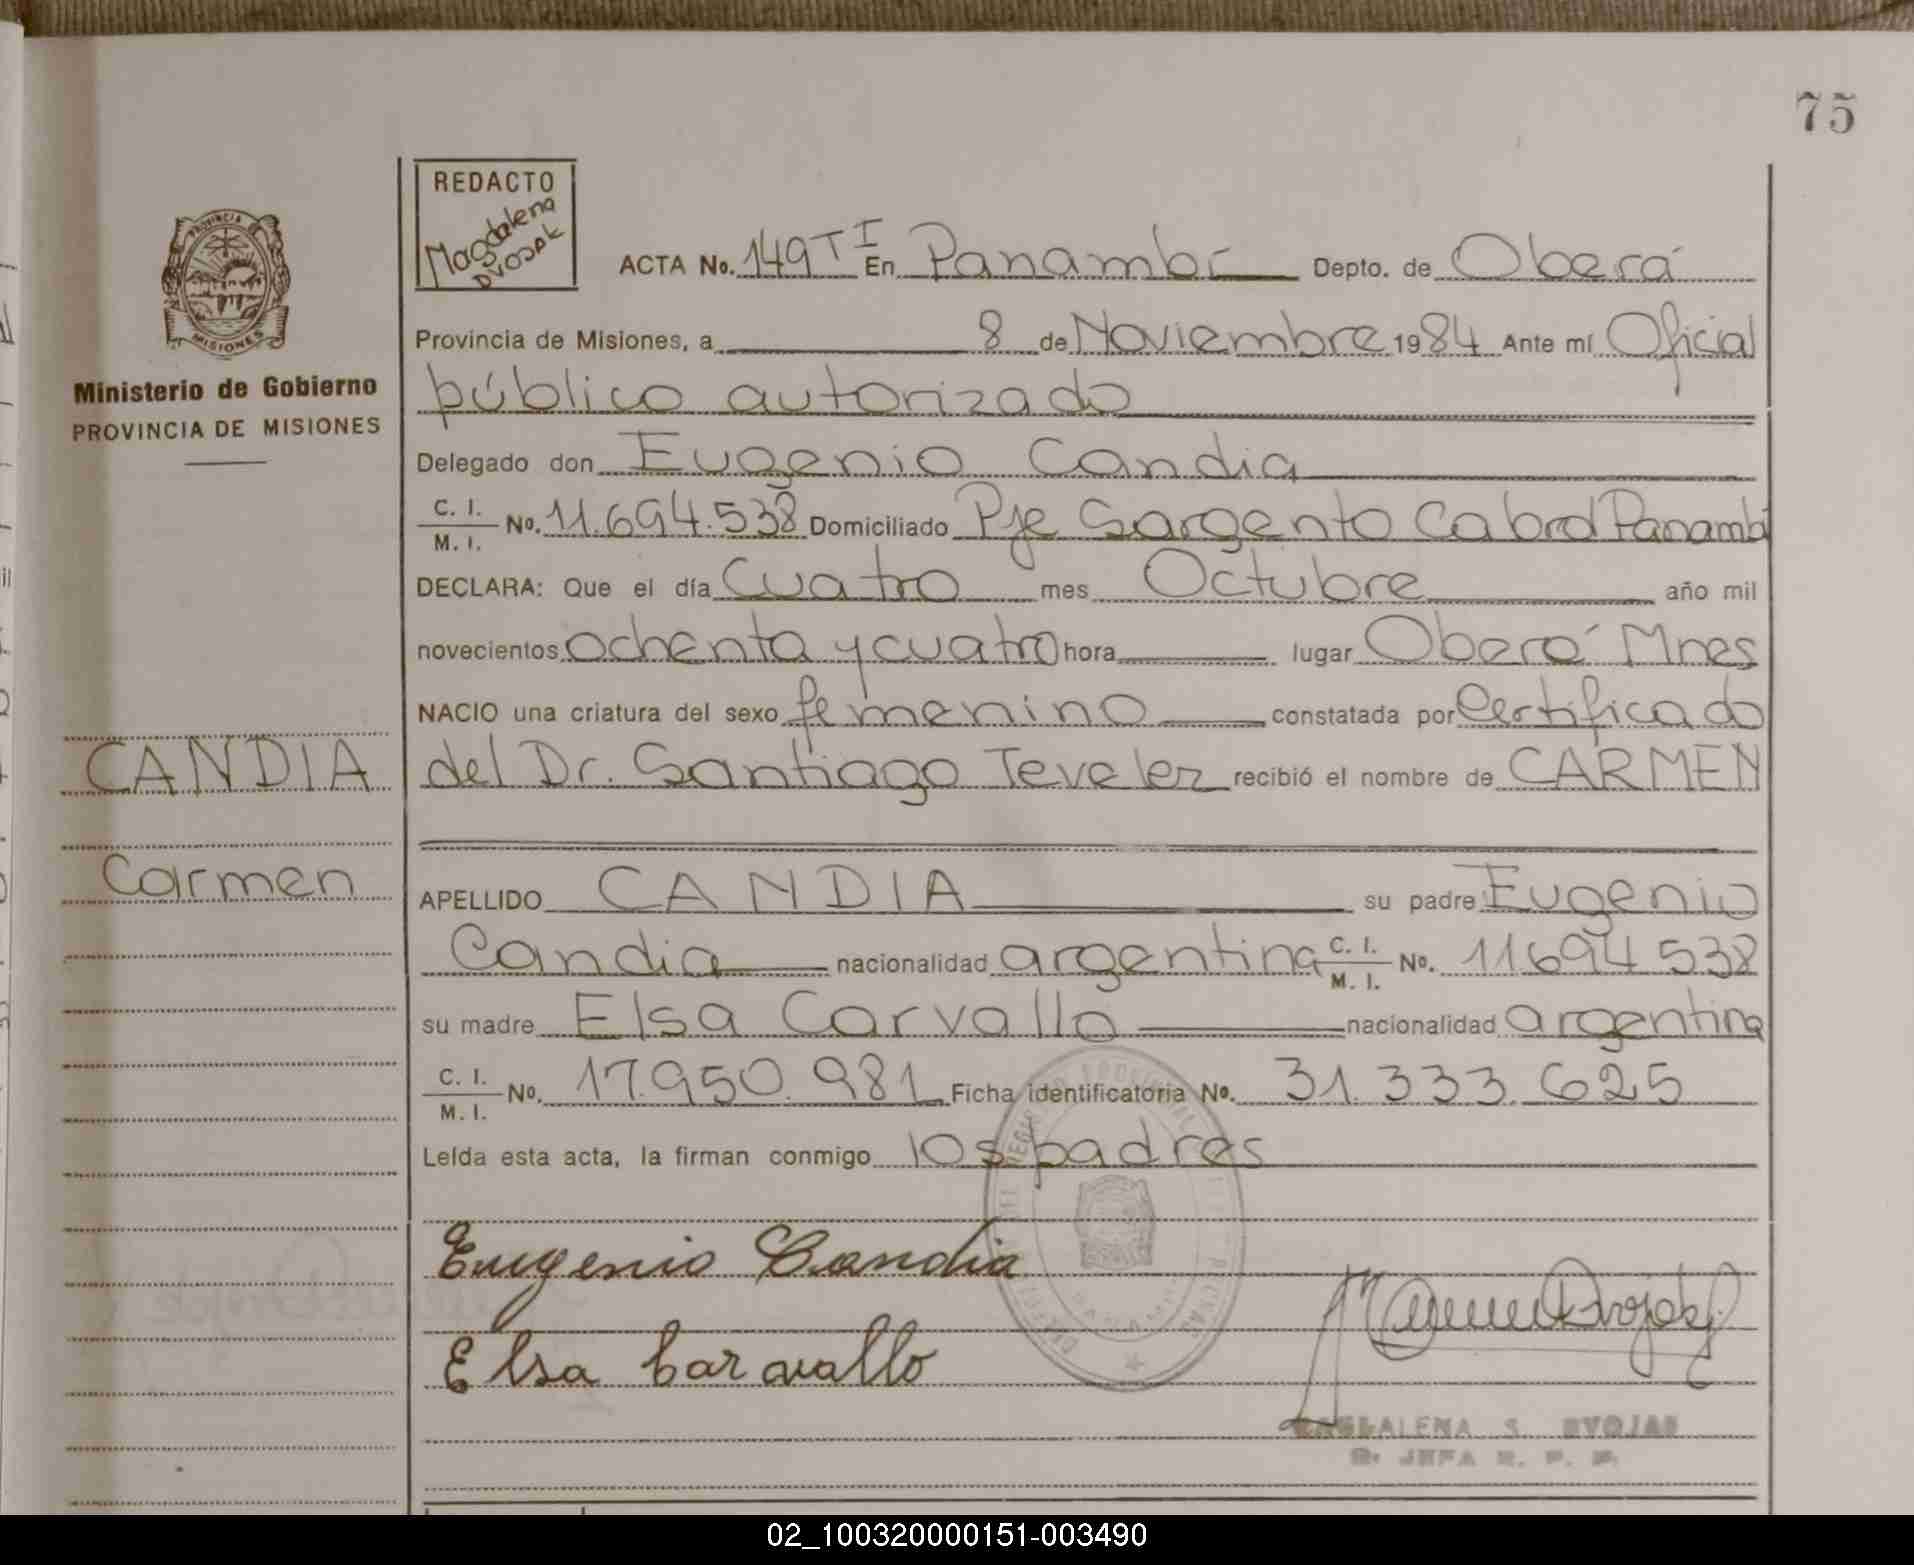 75
REDACTO
Magdalena
DVOJAK
PROVINCIA
MISIONES
Ministerio de Gobierno
PROVINCIA DE MISIONES
ACTA No. 149 T I En Panambí Depto. de Oberá
Provincia de Misiones, a 8 de Noviembre 1984 Ante mí Oficial
público autorizado
Delegado don Eugenio Candia
C. I.
M. I. No. 11.694.538 Domiciliado Pje Sargento Cabral Panambí
DECLARA: Que el día Cuatro mes Octubre año mil
novecientos ochenta y cuatro hora lugar Oberá Mnes
NACIO una criatura del sexo femenino constatada por Certificado
CANDIA
del Dr. Santiago Teveler recibió el nombre de CARMEN
Carmen
APELLIDO CANDIA su padre Eugenio
Candia nacionalidad argentina C. I. M. I. No. 11694538
su madre Elsa Carvallo nacionalidad argentina
C. I.
M. I. No. 17.950.981 Ficha identificatoria No. 31.333.625
Leída esta acta, la firman conmigo los padres
Eugenio Candia
Elsa Carvallo
MAGDALENA S. DVOJAK
JEFA R. P. P.
02_100320000151-003490